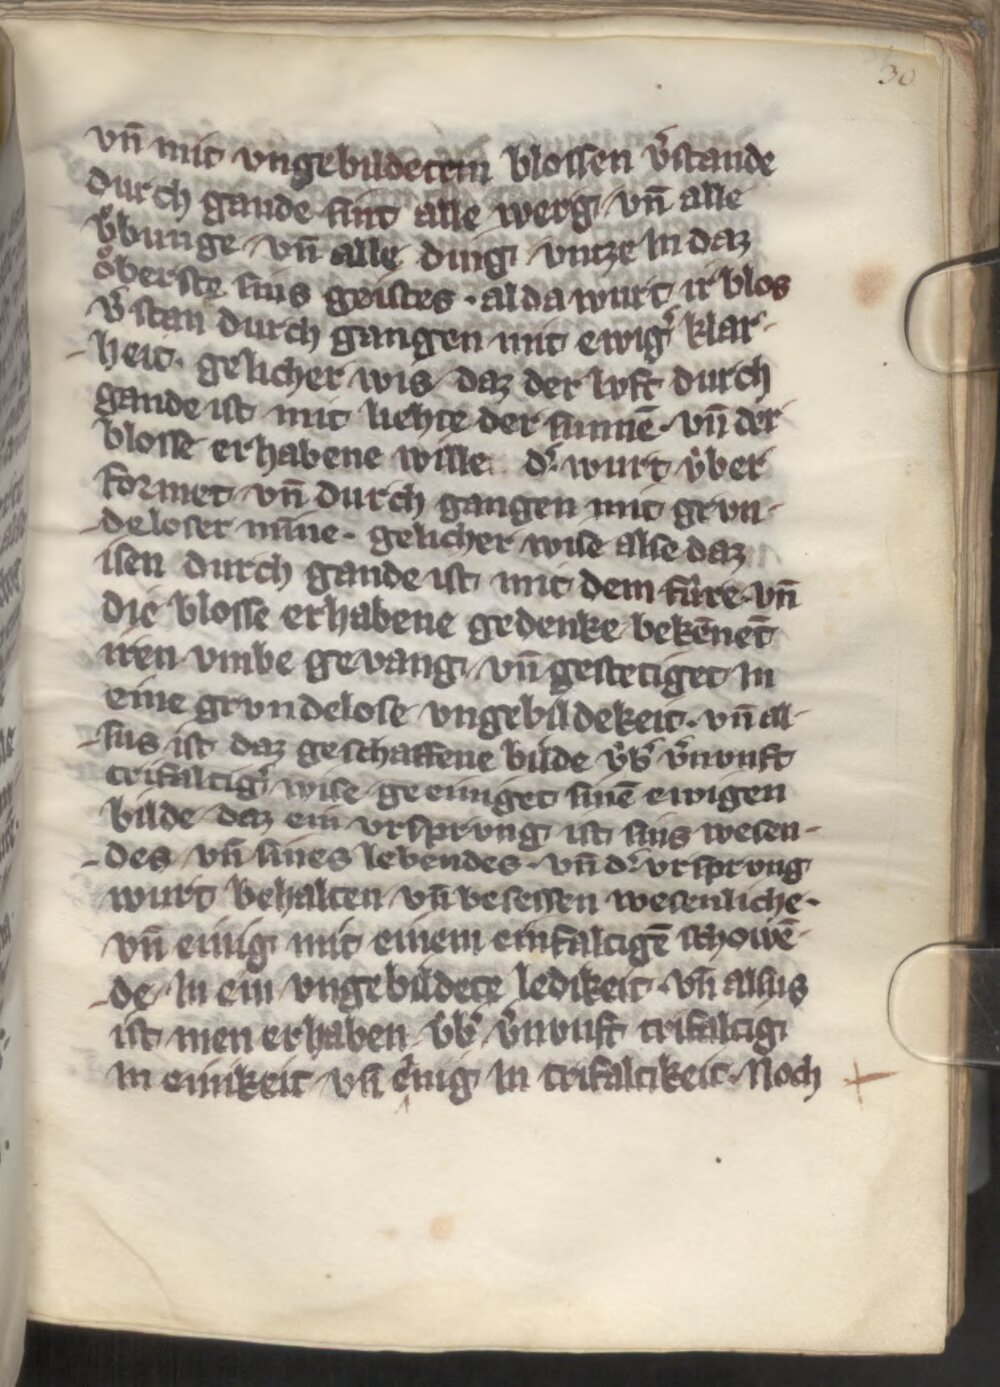 30
vn̄ mit vngebildetem blossen v̓stande
durch gande sint alle werg vn̄ alle
v̓bunge vn̄ alle ding vntze in daz
oͤberste sins geistes · al da wurt ir blos
v̓stan durch gangen mit ewig̓ klar-
heit · gelicher wis daz der lvft durch
gande ist mit liehte der sunnē · vn̄ der
blosse erhabene wille d̓ wurt v̓ber
formet vn̄ durch gangen mit grvn-
deloser mīne · gelicher wise alse daz
isen durch gande ist mit dem fúre · vn̄
die blosse erhabene gedenke bekēnet
iren vmbe gevang vn̄ gestetiget in
eine grvndelose vngebildekeit · vn̄ al-
sus ist daz geschaffene bilde v̓b̓ v̓nvnft
trifaltig̓ wise geeiniget sinē ewigen
bilde daz ein vrsprvng ist sins wesen-
des vn̄ sines lebendes · vn̄ d̓ vrsprvng
wurt behalten vn̄ besessen wesenliche ·
vn̄ einig mit einem einfaltigē schowē-
de in ein vngebildete ledikeit · vn̄ alsus
ist men erhaben v̓b̓ v̓nvnft trifaltig
in einikeit vn̄ einig in trifaltikeit · Noch